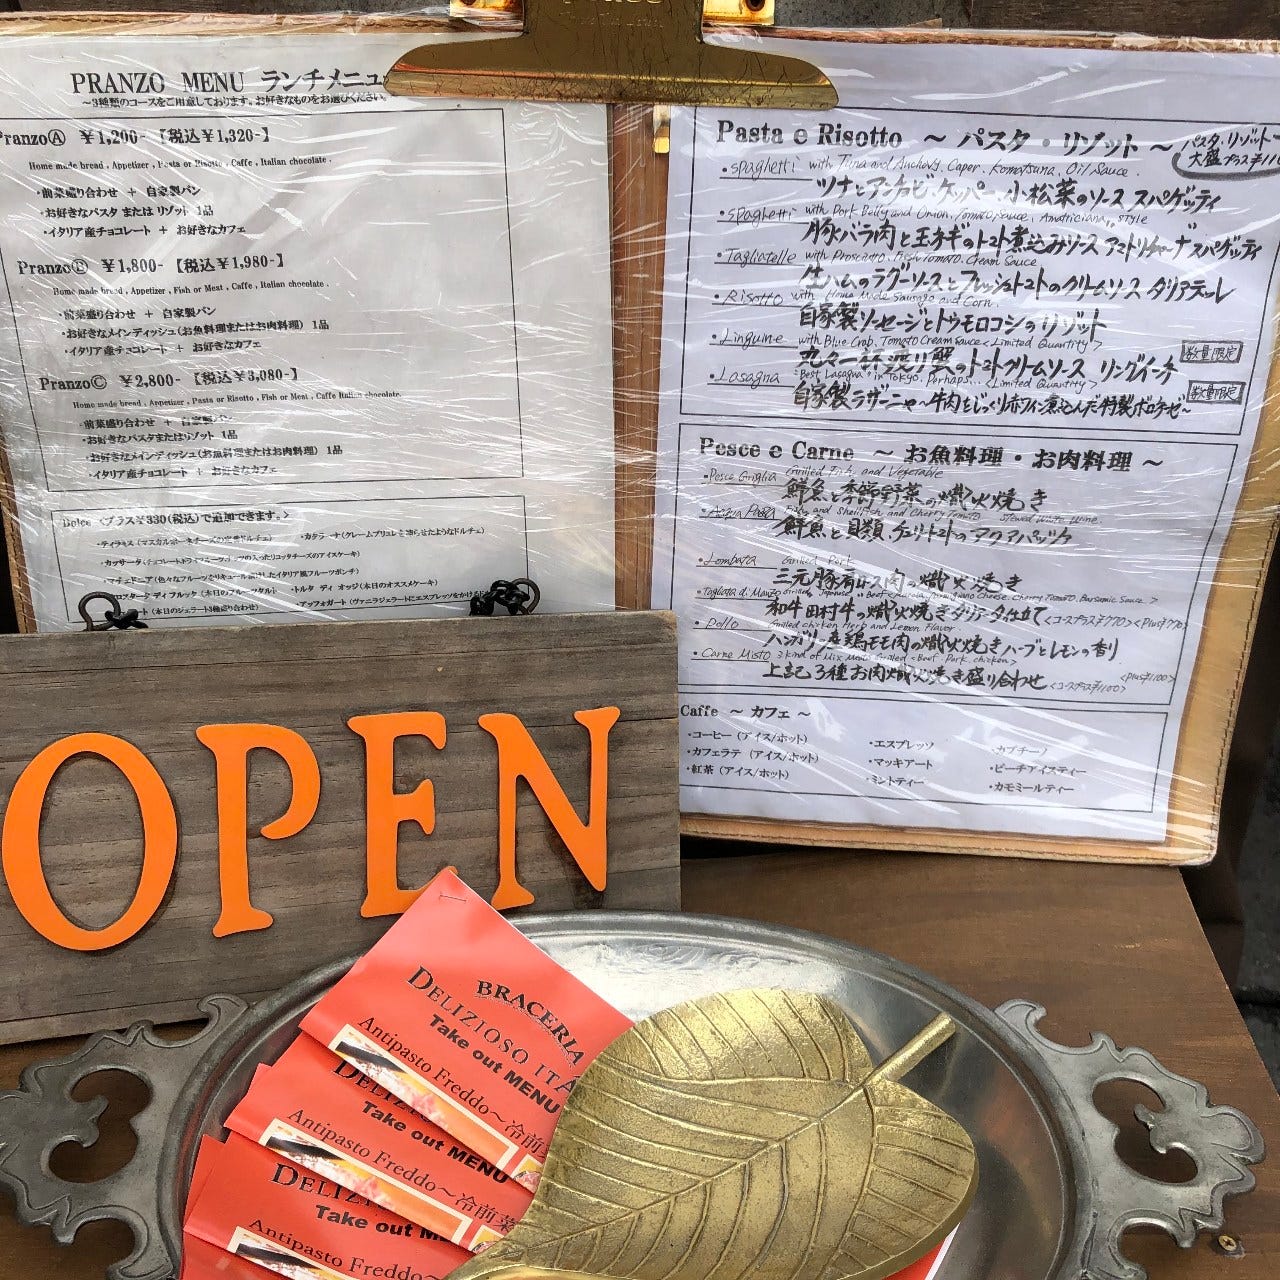 PRANZO MENU ランチメニュー
～3種類のコースをご用意しております。お好きなものをお選びください。
PranzoⒶ ￥1,200- 【税込￥1,320-】
Home made bread , Appetizer , Pasta or Risotto , Caffe , Italian chocolate .
・前菜盛り合わせ ＋ 自家製パン
・お好きなパスタ または リゾット 1品
・イタリア産チョコレート ＋ お好きなカフェ
PranzoⒷ ￥1,800- 【税込￥1,980-】
Home made bread , Appetizer , Fish or Meat , Caffe , Italian chocolate .
・前菜盛り合わせ ＋ 自家製パン
・お好きなメインディッシュ(お魚料理またはお肉料理) 1品
・イタリア産チョコレート ＋ お好きなカフェ
PranzoⒸ ￥2,800- 【税込￥3,080-】
Home made bread , Appetizer , Pasta or Risotto , Fish or Meat , Caffe Italian chocolate.
・前菜盛り合わせ ＋ 自家製パン
・お好きなパスタまたはリゾット 1品
・お好きなメインディッシュ(お魚料理またはお肉料理) 1品
・イタリア産チョコレート ＋ お好きなカフェ
Dolce <プラス￥330(税込)で追加できます。>
・ティラミス(マスカルポーネチーズの定番ドルチェ) ・カタラーナ(クレームブリュレを凍らせたようなドルチェ)
・カッサータ(チョコレートドライフルーツナッツの入ったリコッタチーズのアイスケーキ)
・マチェドニア(色々なフルーツをリキュール漬けしたイタリア風フルーツポンチ)
ロスタータ ディ フルッタ(本日のフルーツタルト) ・トルタ ディ オッジ(本日のオススメケーキ)
ート(本日のジェラート3種盛り合わせ) ・アッフォガート(ヴァニラジェラートにエスプレッソをかける
Pasta e Risotto ～ パスタ・リゾット ～
パスタ・リゾット
大盛プラス￥110
・Spaghetti with Tuna and Anchovy, Caper, Komatsuna, Oil Sauce.
ツナとアンチョビ・ケッパー、小松菜のソース スパゲッティ
・Spaghetti with Pork Belly and Onion, Tomato Sauce, "Amatriciana" style
豚バラ肉と玉ネギのトマト煮込みソース "アマトリチャーナ" スパゲッティ
・Tagliatelle with Prosciutto, Fresh Tomato, Cream Sauce
生ハムのラグーソースとフレッシュトマトのクリームソース タリアテッレ
・Risotto with Home Made Sausage and Corn.
自家製ソーセージとトウモロコシのリゾット
・Linguine with Blue Crab, Tomato Cream Sauce <Limited Quantity>
丸々一杯渡り蟹のトマトクリームソース リングイーネ 数量限定
・Lasagna "Best Lasagna" in Tokyo, Perhaps... <Limited Quantity>
自家製ラザーニャ～牛肉をじっくり赤ワイン煮込んだ特製ボロネーゼ～ 数量限定
Pesce e Carne ～ お魚料理・お肉料理 ～
・Pesce Griglia Grilled Fish and Vegetable
鮮魚と季節野菜の熾火焼き
・Acqua Pazza Fish and Shellfish and Cherry Tomato Stewed White Wine.
鮮魚と貝類、チェリートマトのアクアパッツァ
・Lombata Grilled Pork
三元豚肩ロース肉の熾火焼き
・Tagliata di Manzo Grilled "Japanese" Beef <Rucola, Parmigiano Cheese, Cherry Tomato, Barsamic Sauce.>
和牛田村牛の熾火焼きタリアータ仕立て <コースプラス￥770> <Plus￥770>
・Pollo Grilled chicken Herb and Lemon Flavor
ハンガリー産鶏モモ肉の熾火焼き ハーブとレモンの香り
・Carne Misto 3 kind of Mix Meat Grilled <Beef, Pork, chicken>
上記3種お肉熾火焼き盛り合わせ <コースプラス￥1100> <Plus￥1100>
Caffe ～ カフェ ～
・コーヒー(アイス/ホット) ・エスプレッソ ・カプチーノ
・カフェラテ (アイス/ホット) ・マッキアート ・ピーチアイスティー
・紅茶(アイス/ホット) ・ミントティー ・カモミールティー
OPEN
BRACERIA
DELIZIOSO ITA
Take out MENU
Antipasto Freddo～冷前菜
DELIZI
Take out MENU
Antipasto Freddo～冷前菜
DELIZI
Take out M
Antipasto Freddo～